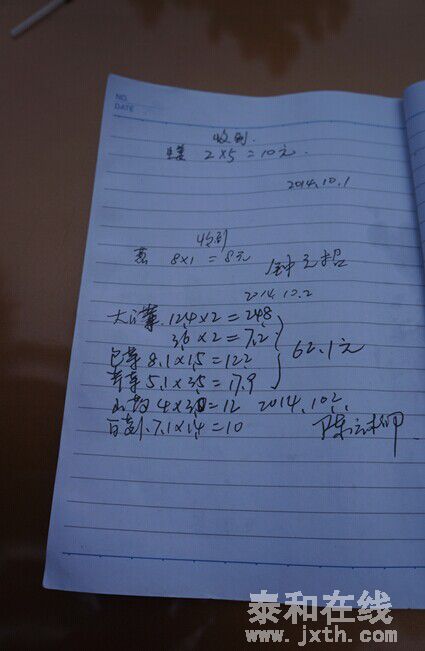 NO.
DATE
收到.
生姜 2×5=10元.
2014.10.1
收到
葱 8×1=8元
钟
2014.10.2
12.4×2=24.8
3.6×2=7.2
包菜 8.1×1.5=12.2
5.1×3.5=17.9
62.1元
4×3.0=12 2014.10.2.
7.1×1.4=10
陈
泰和在线
www.jxth.com